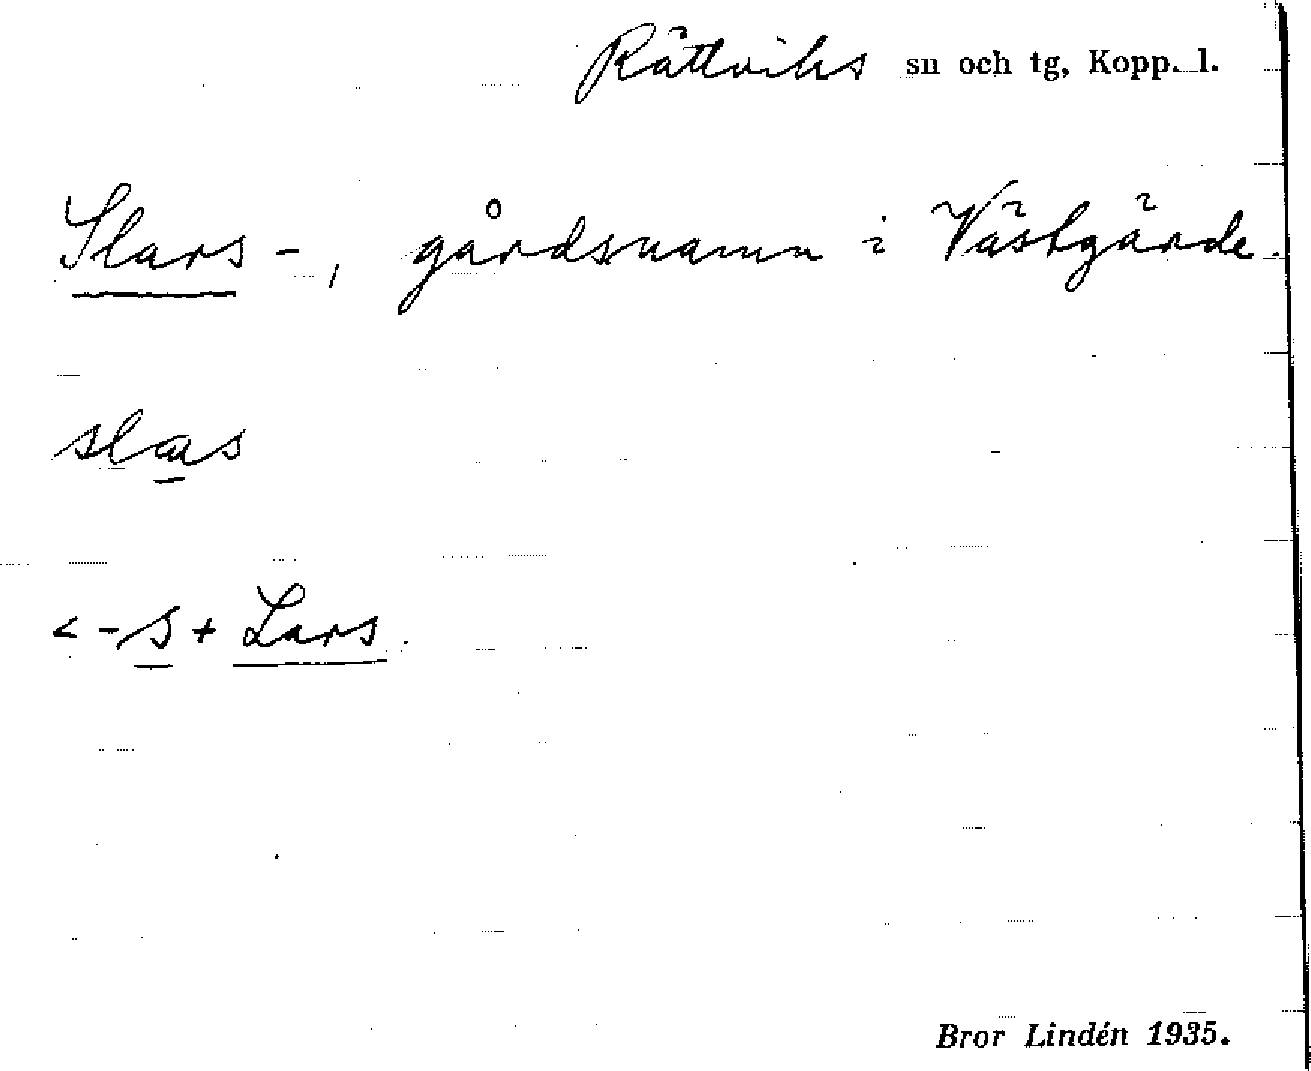 Rättviks sn och tg, Kopp. l.
Slars -, gårdsnamn i Västgärde.
slas
< - s + Lars.
Bror Lindén 1935.